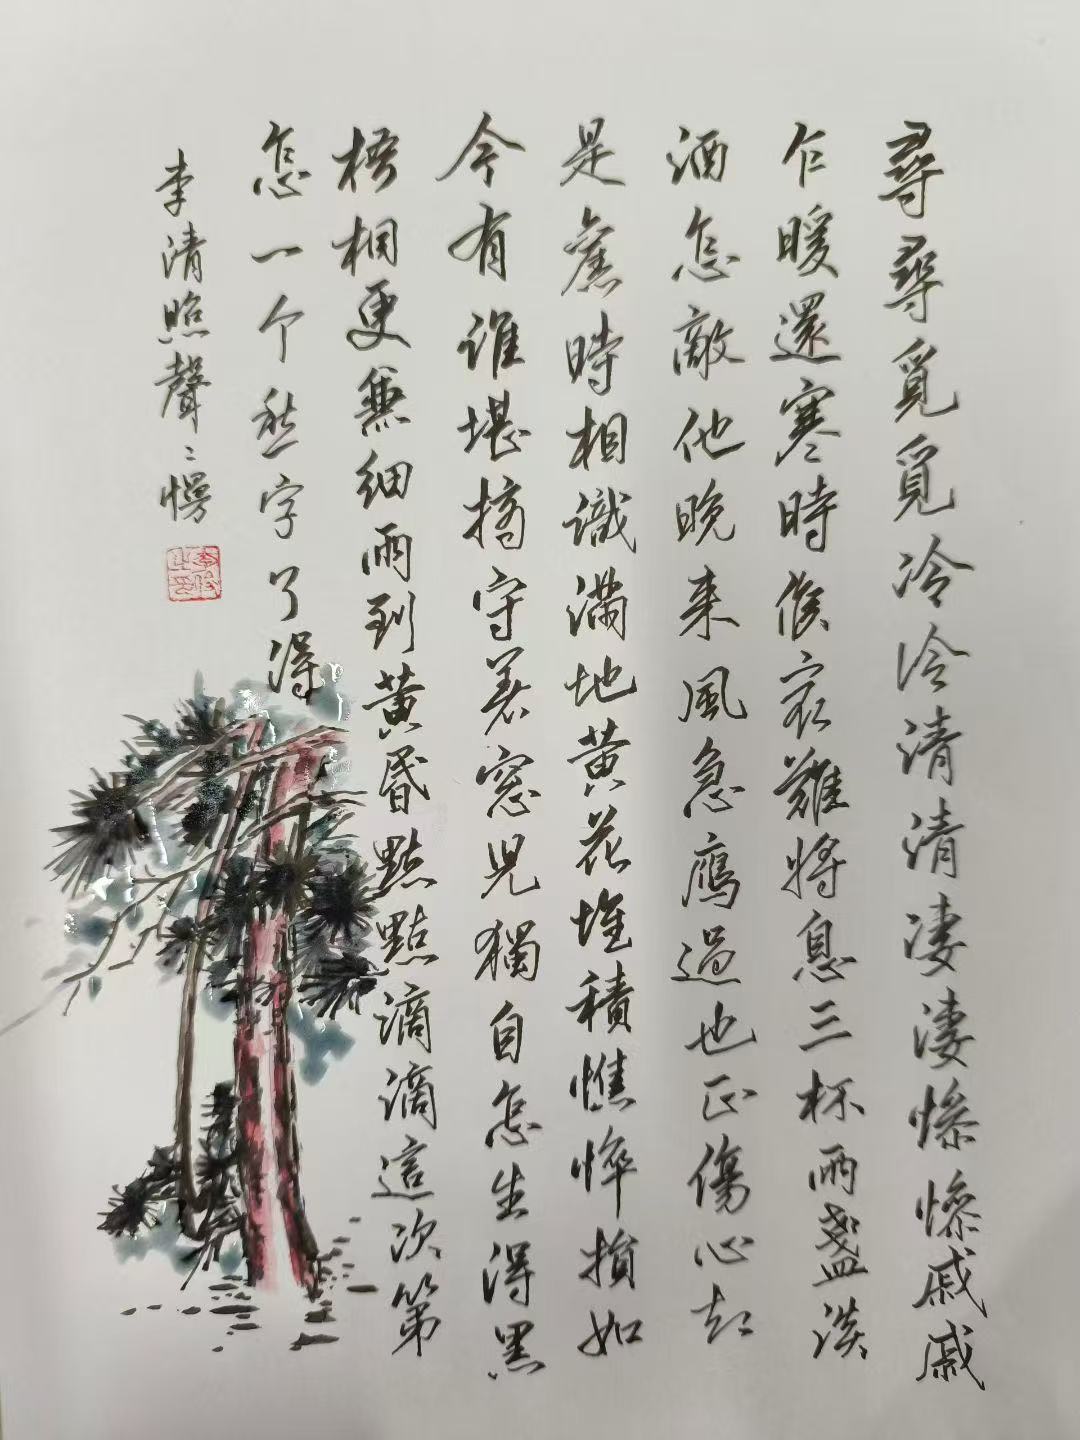 尋尋覓覓冷冷清清凄凄慘慘戚戚
乍暖還寒時候最難將息三杯兩盞淡
酒怎敵他晚来風急鴈過也正傷心却
是舊時相識滿地黃花堆積憔悴損如
今有谁堪摘守著窓兒獨自怎生得黑
梧桐更兼細雨到黃昏點點滴滴這次第
怎一个愁字了得
李清照聲〻慢